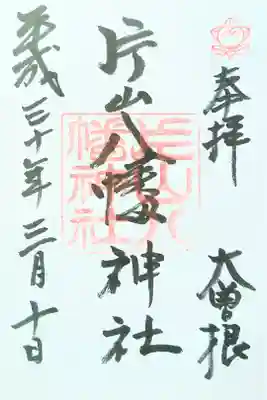 奉拝 大曽根
片山八幡神社
平成三十年三月十日
片山八
幡神社